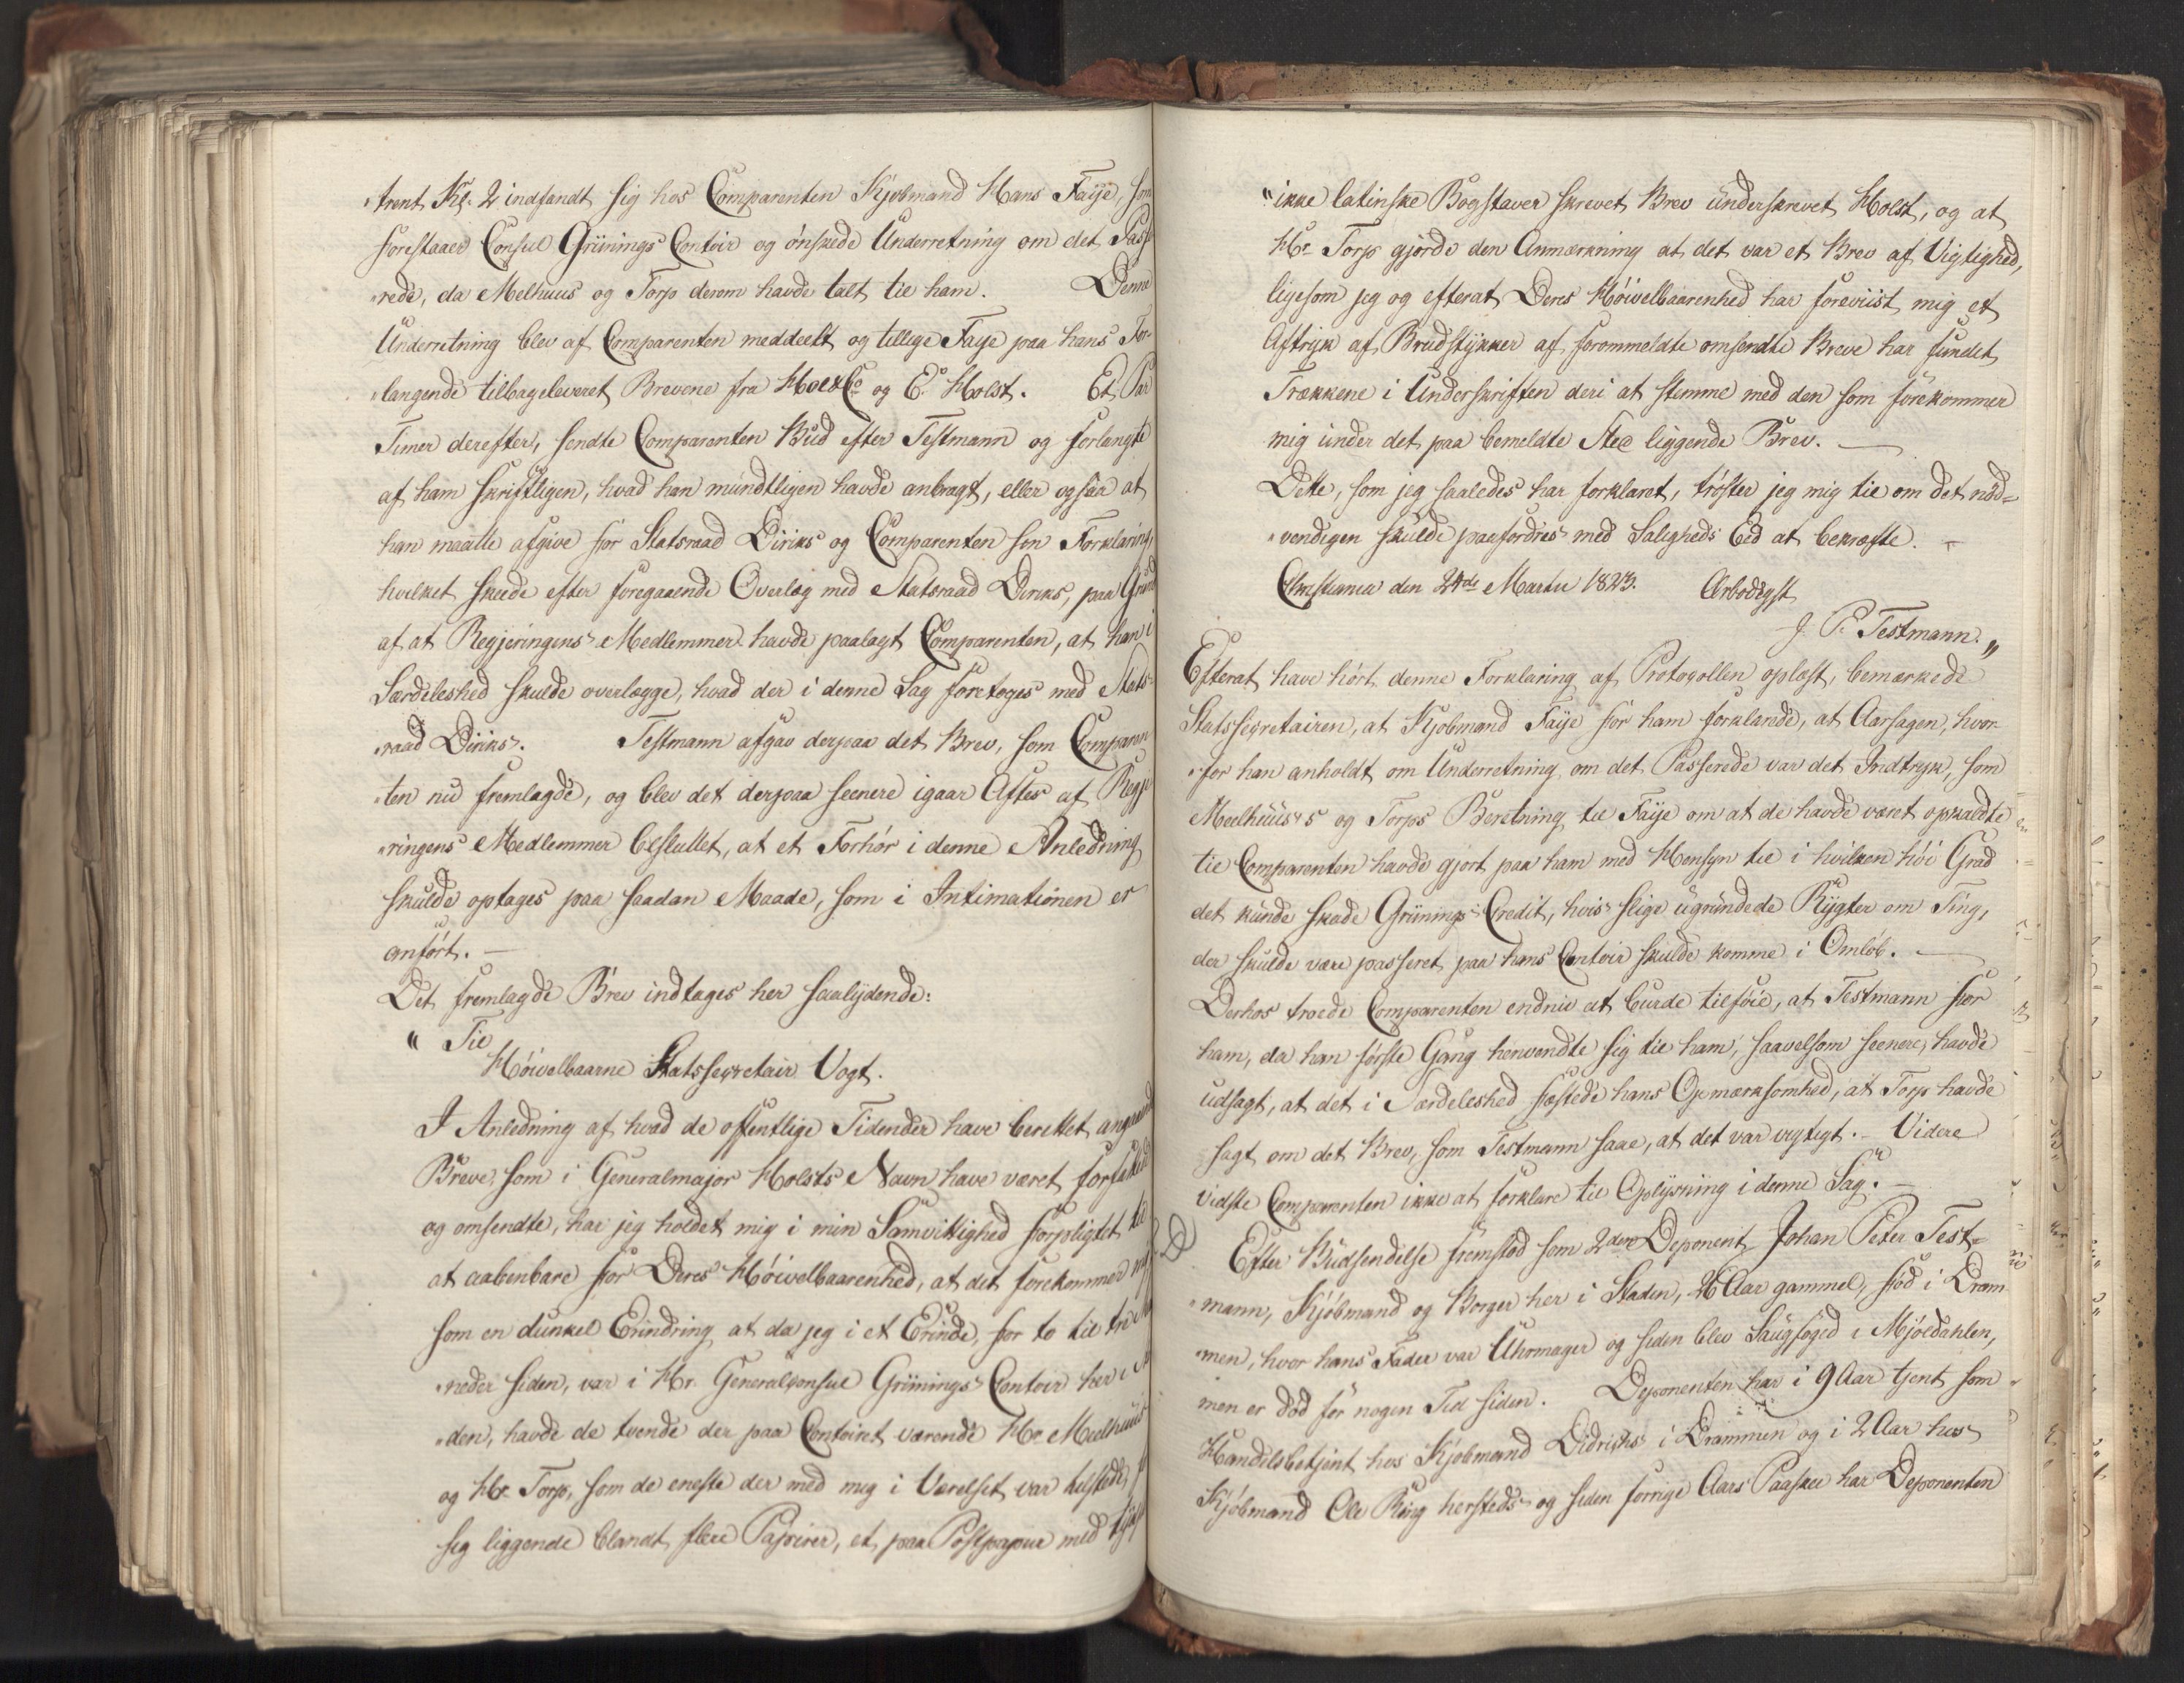 „trent Kl. 2 indfandt sig hos Comparenten Kjøbmand Hans Faÿe, som
forestaaer Consul Grünings Contoir og ønskede Underretning om det Passe
„rede, da Melhuus og Torp derom havde talt til ham. Denne
Underretning blev af Comparenten meddeelt og tillige Faye paa hans For-
„langende tilbageleveret Brevene fra Hoe & Co og E. Holst. Et Par
Timer derefter, sendte Comparenten Bud efter Testmann og forlangte
af ham skriftligen, hvad han mundtligen havde anbragt, eller ogsaa at
han maatte afgive for Statsraad Diriks og Comparenten sin Forklaring,
hvilket skeede efter foregaaende Overlæg med Statsraad Diriks, paa Grund
af at Regjeringens Medlemmer havde paalagt Comparenten, at han i
Særdeleshed skulde overlægge, hvad der i denne Sag foretoges med Stats-
„raad Diriks. Testmann afgav derpaa det Brev, som Comparen
„ten nu fremlagde, og blev det derpaa seenere igaar Aftes af Regje
„ringens Medlemmer besluttet, at et Forhør i denne Anledning
skulde optages paa saadan Maade, som i Intimationen er
anført. —
Det fremlagde Brev indtages her saalydende:
„ Til
Høivelbaarne Statssecretair Vogt.
I Anledning af hvad de offentlige Tidender have berettet angaaende
Breve, som i Generalmajor Holsts Navn have været forfalskede
og omsendte, har jeg holdet mig i min Samvittighed forpligtet til
at aabenbare for Deres Høivelbaarenhed, at det forekommer mig
som en dunkel Erindring at da jeg i et Erinde, for to til tre Maa
„neder siden, var i Hr. Generalconsul Grünings Contoir her i Sta
„den, havde de tvende der paa Contoiret værende Hr. Meelhuus
og Hr. Torp, som de eneste der med mig i Værelset var tilstede,
sig liggende blandt flere Papirer, et paa Postpapir med tydske
„ikke latinske Bogstaver skrevet Brev underskrevet Holst, og at
Hr. Torp gjorde den Anmærkning at det var et Brev af Vigtighed,
ligesom jeg og efterat Deres Høivelbaarenhed har foreviist mig et
Aftryk af Brudstykker af forommeldte omsendte Breve har fundet
Trækkene i Underskriften deri at stemme med den som forekommer
mig under det paa bemeldte Sted liggende Brev. —
Dette, som jeg saaledes har forklaret, trøster jeg mig til om det nød-
„vendigen skulde paafordres med Saligheds Eed at bekræfte. —
Christiania den 24de Martii 1823. Ærbødigst
J. P. Testmann. „
Efterat have hørt denne Forklaring af Protocollen oplæst, bemærkede
Statssecretairen, at Kjøbmand Faÿe for ham forklarede, at Aarsagen, hvor-
„for han anholdt om Underretning om det Passerede var det Indtryk, som
Meelhuus's og Torps Beretning til Faÿe om at de havde været opkaldte
til Comparenten havde gjort paa ham med Hensyn til i hvilken høi Grad
det kunde skade Grünings Credit, hvis slige ugrundede Rygter om Ting,
der skulde være passeret paa hans Contoir skulde komme i Omløb. —
Derhos troede Comparenten endnu at burde tilføie, at Testmann for
ham, da han første Gang henvendte sig til ham, saavelsom seenere, havde
udsagt, at det i Særdeleshed fæstede hans Opmærksomhed, at Torp havde
sagt om det Brev, som Testmann saae, at det var vigtigt. – Videre
vidste Comparenten ikke at forklare til Oplysning i denne Sag. —
Efter Budsendelse fremstod som 2den Deponent Johan Peter Test-
„mann, Kjøbmand og Borger her i Staden, 26 Aar gammel, fød i Dram-
„men, hvor hans Fader var Uhrmager og siden blev Saugfoged i Mjøldahlen,
men er død for nogen Tid siden. Deponenten har i 9 Aar tjent som
Handelsbetjent hos Kjøbmand Didrichs i Drammen og i 2 Aar hos
Kjøbmand Ole Ring hersteds og siden forrige Aars Paaske har Deponenten